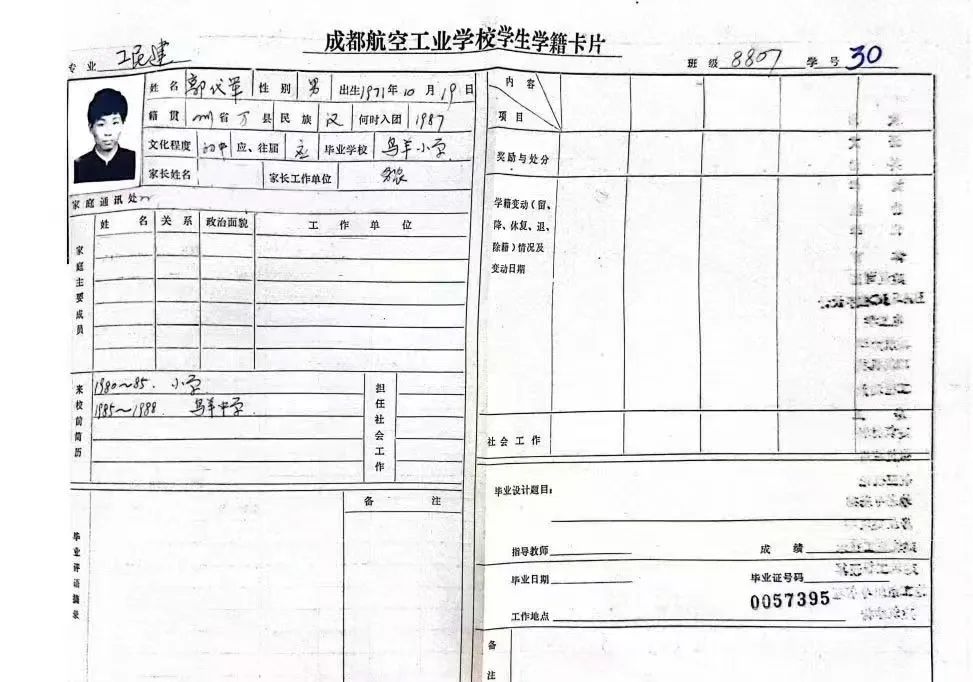 成都航空工业学校学生学籍卡片
专业 工民建 班级 8807 学号 30
姓名 郭代军 性别 男 出生1971年10月19日
籍贯 川省 万县 民族 汉 何时入团 1987
文化程度 初中 应、往届 应 毕业学校 乌羊小学
家长姓名 家长工作单位 务农
家庭通讯处
家庭主要成员 姓名 关系 政治面貌 工作单位
来校前简历
1980~85. 小学
1985~1988. 乌羊中学.
担任社会工作
毕业评语摘录
备注
内容
项目
奖励与处分
学籍变动(留、
降、休复、退、
除籍)情况及
变动日期
社会工作
毕业设计题目:
指导教师 成绩
毕业日期 毕业证号码
0057395
工作地点
备注